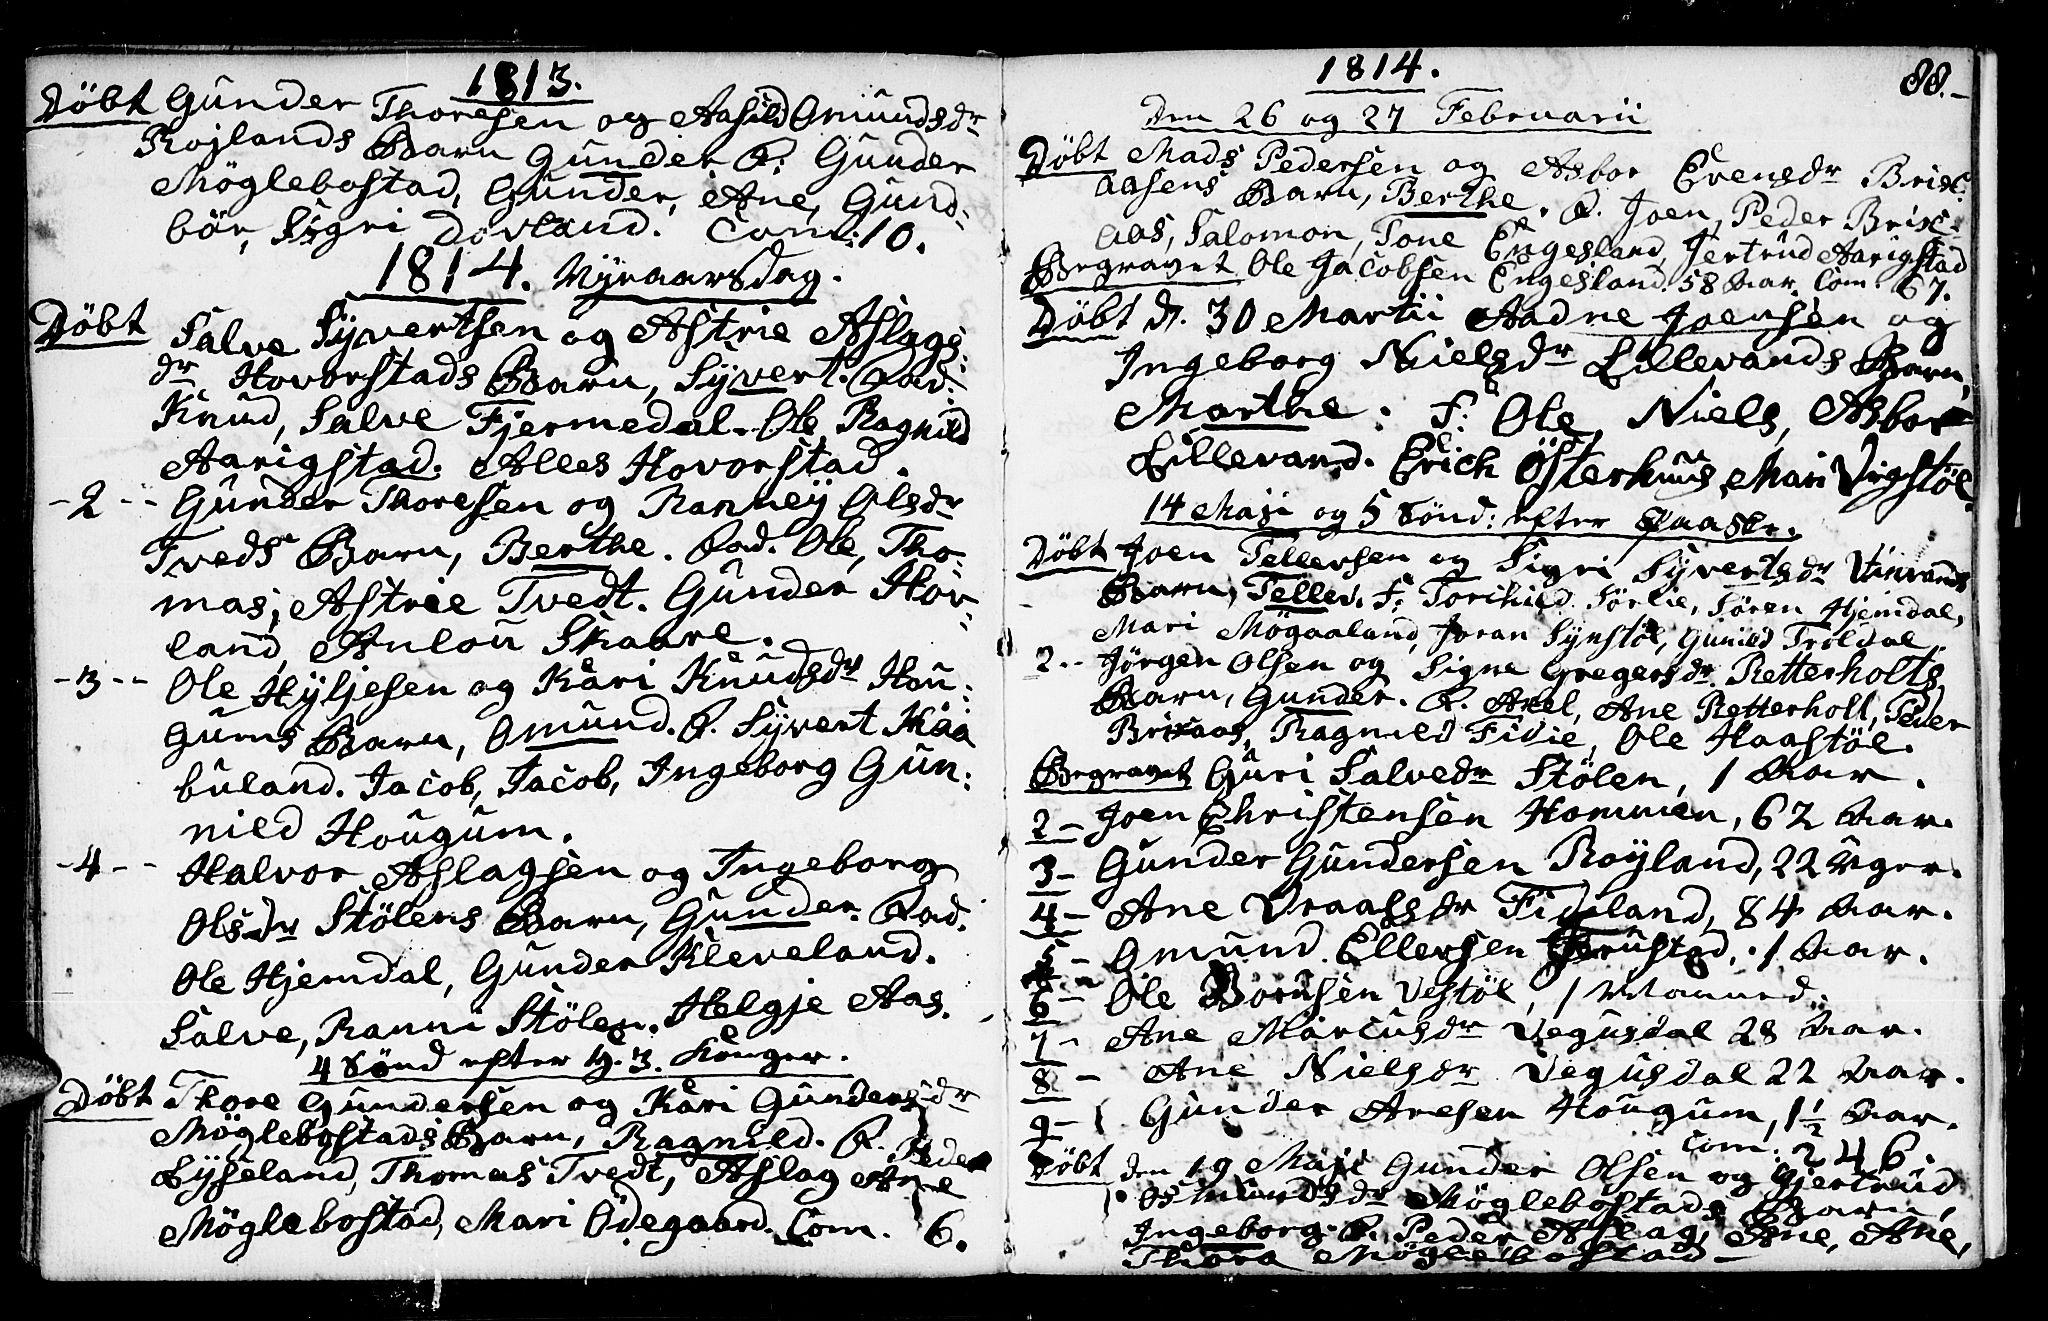 1813.
Döbt Gunder Thoresen og Aasild Omundsdr
Rojlands Barn Gunder F: Gunder
Möglebostad, Gunder, Ane, Gund-
bör, Sigri Dovland. Com: 10.
1814. Nyeaarsdag.
Döbt Salve Syvertsen og Astrie Aslags
dr Hovorstads Barn, Syvert. Fad:
Knud, Salve Fjermedal. Ole Ragnild
Aarigstad. Alles Hovorstad.
-2- Gunder Thoresen og Ranney Olsdr
Tveds Barn, Berthe. Fad. Ole, Tho-
mas, Astrie Tvedt. Gunder Hov-
land, Anlou Skaare.
-3- Ole Hyljesen og Kari Knudsdr Hou-
gums Barn, Omund. F. Syvert Kaa
buland. Jacob, Jacob, Ingeborg Gun:
nild Hougum.
-4- Halvor Aslagsen og Ingeborg
Olsdr Stölens Barn, Gunder. Fad.
Ole Hjemdal, Gunder Kleveland.
Salve, Ranni Stölen. Helgje Aas.
4 Sönd efter h. 3. Konger.
Döbt Thore Gundersen og Kari Gundersdr
Möglebostads Barn, Ragnild. F. Peder
Lyseland, Thomas Tvedt, Aslag Ane
Möglebostad, Mari Ödegaard. Com. 6.
1814. 88.
Den 26 og 27 Februarii
Döbt Mads Pedersen og Asbor Evensdr Brisc:
aasens Barn, Berthe. F. Joen, Peder Brisc-
aas, Salomon, Tone Engesland, Jertrud Aarigstad
Begravet Ole Jacobsen Engesland. 58 Aar. Com. 67.
Döbt d. 30 Martii Aadne Joensen og
Ingeborg Nielsdr Lillevands Barn,
Marthe. F: Ole, Niels, Asbor
Lillevand. Erich Österhuus, Mari Vigstöl
14 Maji og 5 Sönd: efter Paaske.
Döbt Joen Tellevsen og Sigri Syvertsdr Vinrands
Barn, Tellev. F: Torchild Sörlie, Sören Hjemdal,
Mari Mögaaland, Joran Synstöl, Gunild Troldal
2-- Jörgen Olsen og Signe Gregersdr Retterholts
Barn, Gunder. F. Axel, Ane Retterholt, Peder
Briscaas, Ragnild Fidie, Ole Haastöl.
Begravet Guri Salvedr Stölen, 1 Aar.
2- Joen Christensen Hommen, 62 Aar.
3- Gunder Gundersen Royland, 22 Uger.
4- Ane Draalsdr Fideland, 84 Aar.
5- Omund Ellersen Berustad, 1 Aar.
6- Ole Bornsen Vestöl, 1 Maaned.
7- Ane Marcusdr Vegusdal 28 Aar.
8- Ane Nielsdr Vegusdal 22 Aar.
9- Gunder Aresen Hougum, 1 1/2 Aar.
Com: 246.
Döbt den 19 Maji Gunder Olsen og Gjertrud
Osmundsdr Möglebostads Barn,
Ingeborg. F. Peder Aslag, Ane, Ane,
Thora Möglebostad